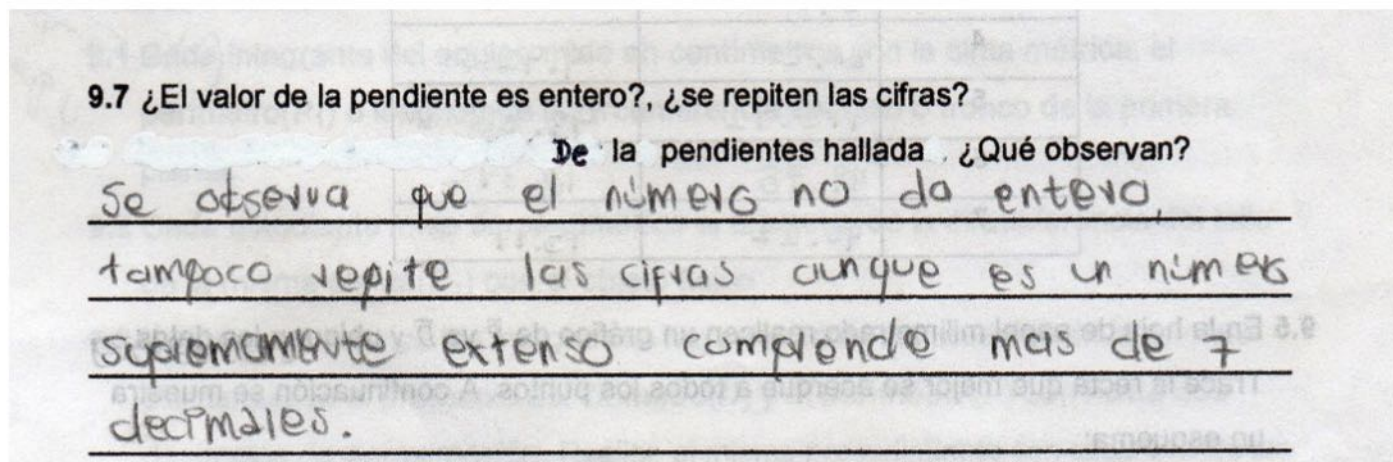 9.7 ¿El valor de la pendiente es entero?, ¿se repiten las cifras?
De la pendientes hallada . ¿Qué observan?
Se observa que el número no da entero,
tampoco repite las cifras aunque es un número
supremamente extenso comprende mas de 7
decimales.